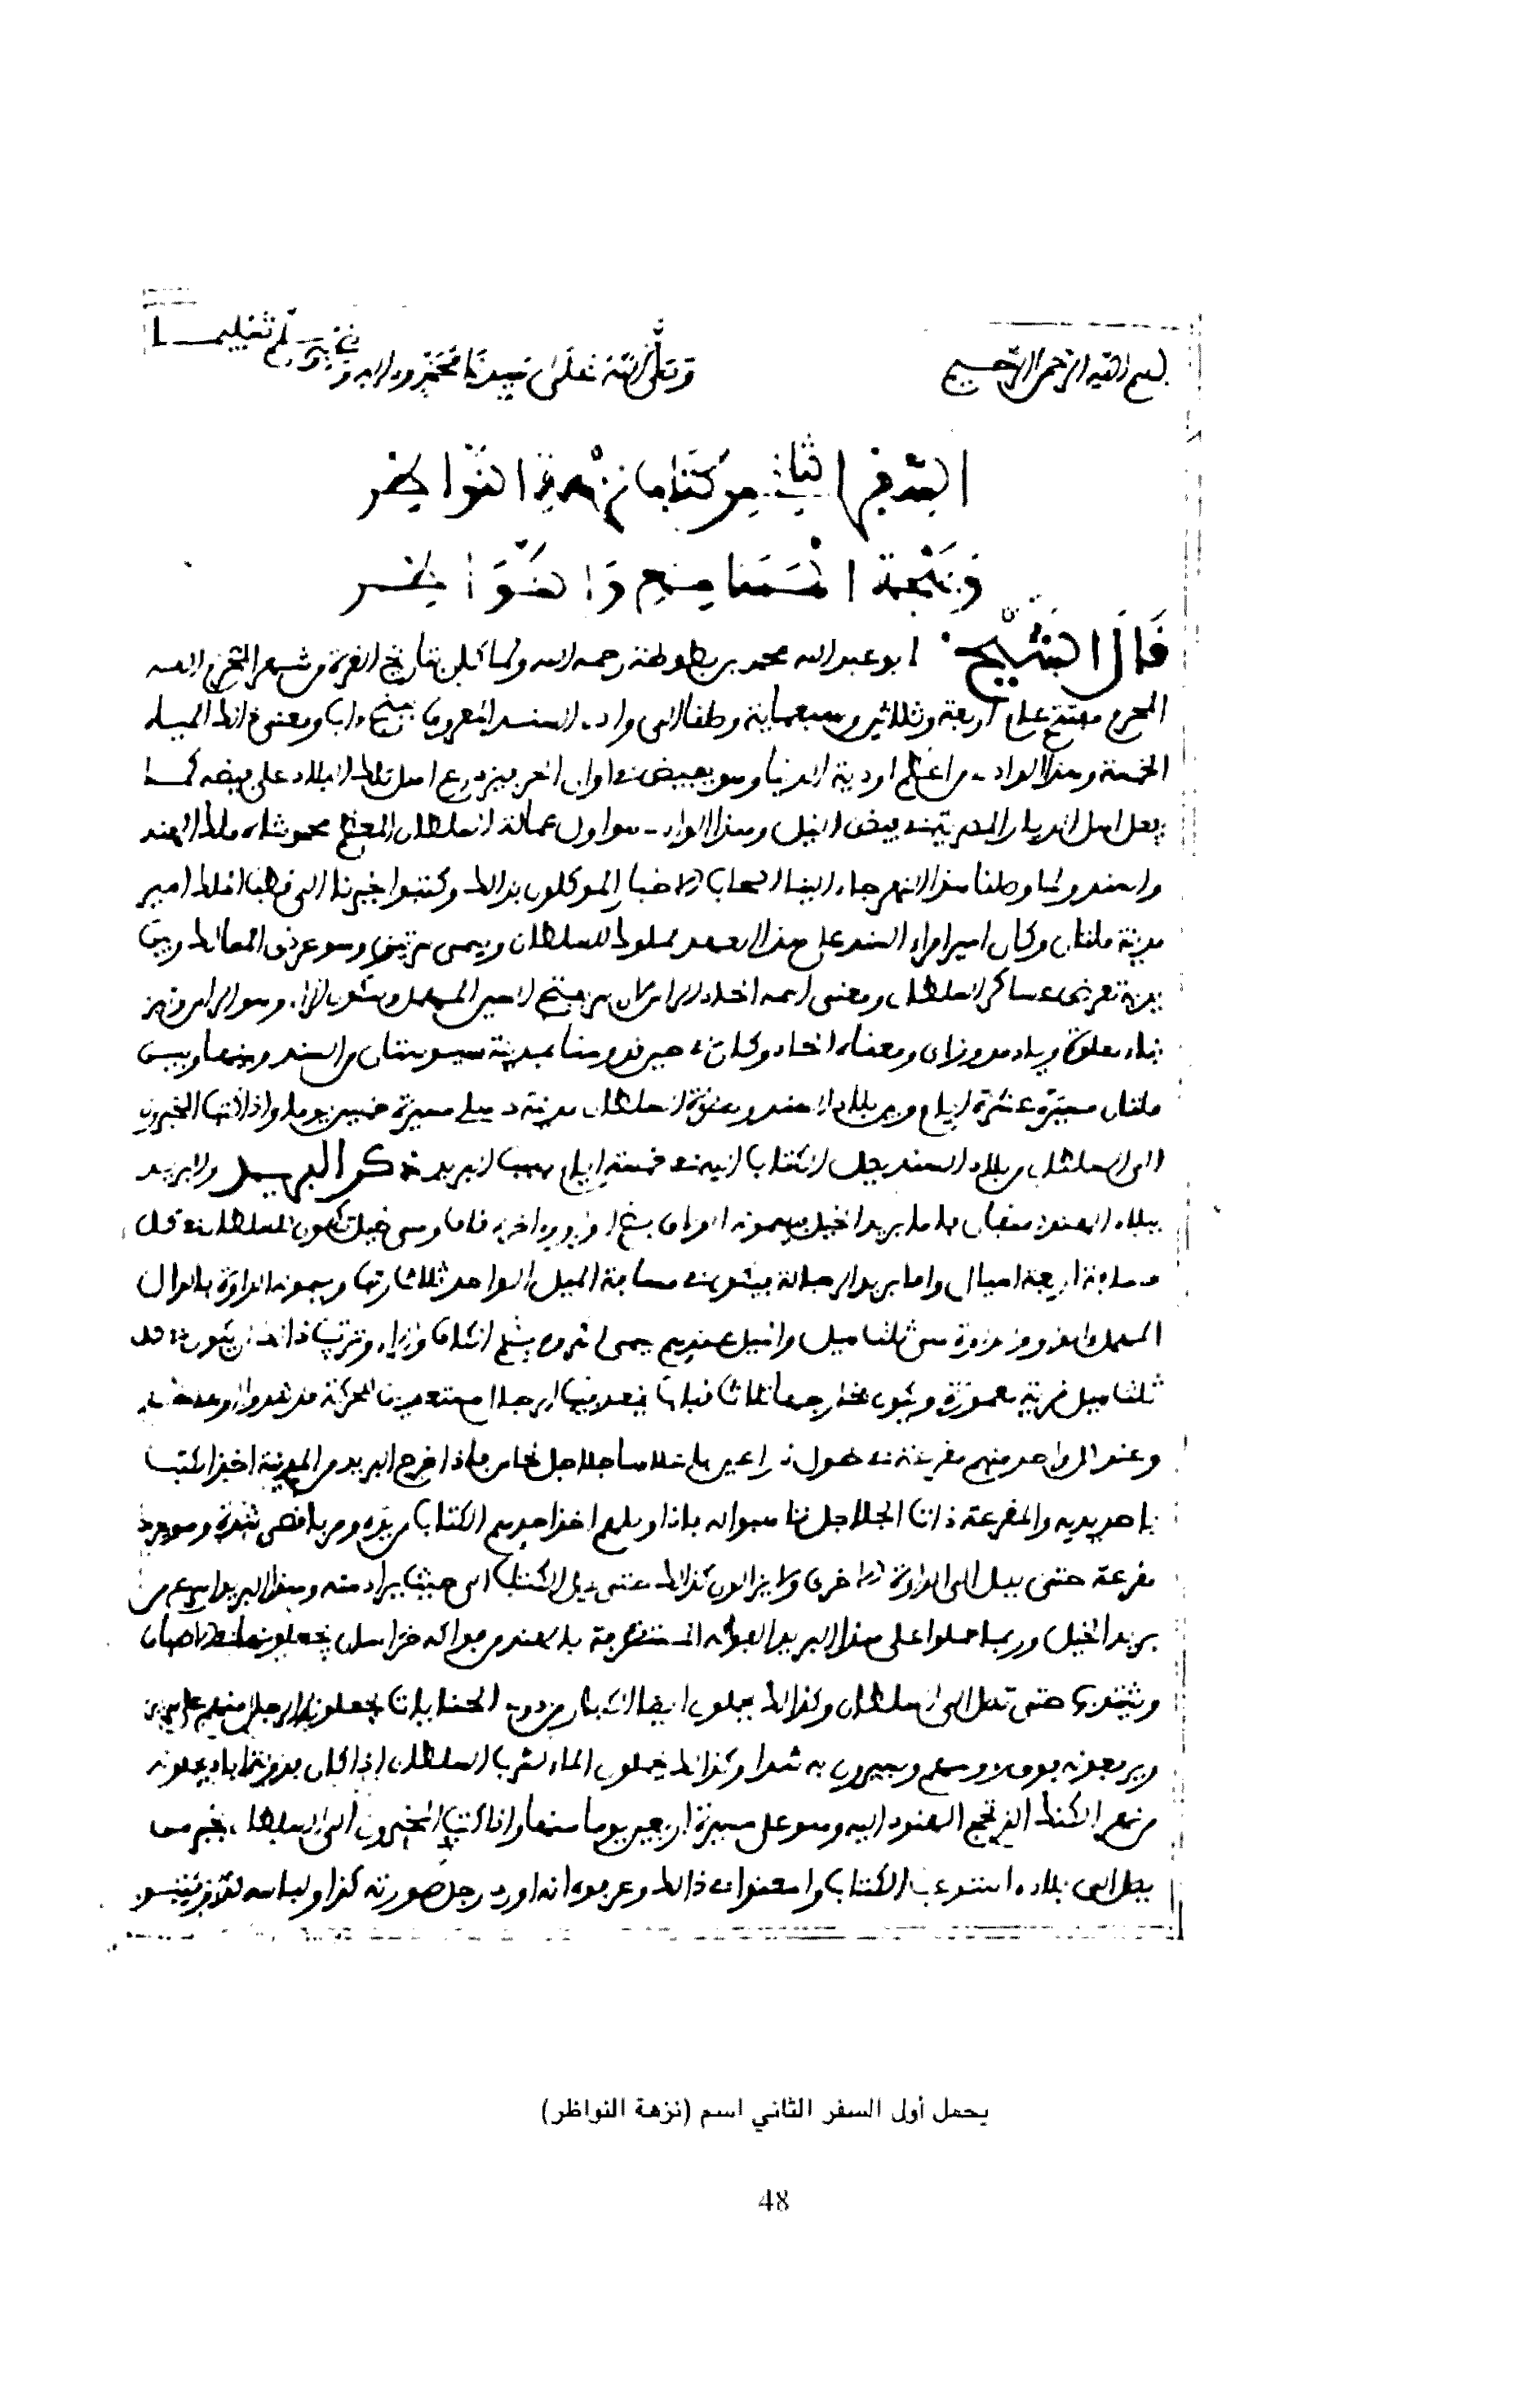 بسم الله الرحمن الرحيم وصلى الله على سيدنا محمد وآله وصحبه وسلم تسليما
السفر الثاني من كتاب نزهة النواظر
وبهجة المسامع والنواظر
قال الشيخ ابو عبد الله محمد بن بطوطة رحمه الله ولما كان بتاريخ الغرة من شهر المحرم
اربعة وثلاثين وسبعماية وصلنا الى وادي السند المعروف ببنج اب ومعنى ذلك المياه
الخمسة وهذا الوادي من اعظم اودية الدنيا وهو يفيض في اوان الحر فيزدرع اهل تلك البلاد على فيضه كما
يفعل اهل الديار المصرية في فيض النيل وهذا الوادي هو اول عمالة السلطان المعظم محمد شاه ملك الهند
والسند ولما وصلنا هذا النهر جاء الينا اصحاب الاخبار الموكلون بذلك وكتبوا بخبرنا الى قطب الملك امير
مدينة ملتان وكان امير امراء السند على هذا العهد مملوك للسلطان يسمى سرتيز وهو عرض المماليك وبين
يديه تعرض عساكر السلطان ومعنى اسمه الحاد الراس لان سر بفتح السين المهمل وسكون الراء هو الراس وتيز
بتاء معلوة وياء مد وزاي ومعناه الحاد وكان في حين قدومنا بمدينة سيوستان من السند وبينها وبين
ملتان مسيرة عشرة ايام وبين بلاد السند وحضرة السلطان مدينة دهلي مسيرة خمسين يوما واذا كتب المخبرون
الى السلطان من بلاد السند يصل الكتاب اليه في خمسة ايام بسبب البريد ذكر البريد والبريد
ببلاد الهند صنفان فاما بريد الخيل فيسمونه الولاق وهي خيل تكون للسلطان في كل
مسافة اربعة اميال واما بريد الرجالة فيكون في مسافة الميل الواحد ثلاث رتب ويسمونها الداوة بالدال
المهمل والواو والداوة هي ثلث ميل والميل عندهم يسمى الكروه وترتيب ذلك ان يكون في كل
ثلث ميل قرية معمورة ويكون بخارجها ثلاث قباب يقعد فيها الرجال مستعدين للحركة قد شدوا اوساطهم
وعند الواحد منهم مقرعة في طول ذراعين باعلاها جلاجل نحاس فاذا خرج البريد من المدينة اخذ الكتاب
باحدى يديه والمقرعة ذات الجلاجل فاذا اخذ احدهم الكتاب من يده ومر باقصى شدة وهو يحرك
مقرعة حتى يصل الى الداوة الاخرى ولا يزالون كذلك حتى يصل الكتاب الى حيث يراد منه وهذا البريد اسرع من
بريد الخيل وربما حملوا على هذا البريد الفواكه المستطرفة بالهند من فواكه خراسان يجعلونها في الاطباق
ويشتدون حتى تصل الى السلطان وكذلك يحملون ايضا الكبار من ذوي الجنايات يجعلون الرجل منهم على سرير
ويرفعونه فوق رءوسهم ويسيرون به شدا وكذلك يحملون الماء لشرب السلطان اذا كان بدولة اباد يحملونه
من نهر الكنك الذي تحج الهنود اليه وهو على مسيرة اربعين يوما منها واذا كتب المخبرون الى السلطان بخبر من
يصل الى بلاده استوعب الكتاب وامعنوا في ذلك وعرفوه انه ورد رجل صورته كذا ولباسه كذا
يحمل أول السفر الثاني اسم (نزهة النواظر)
48